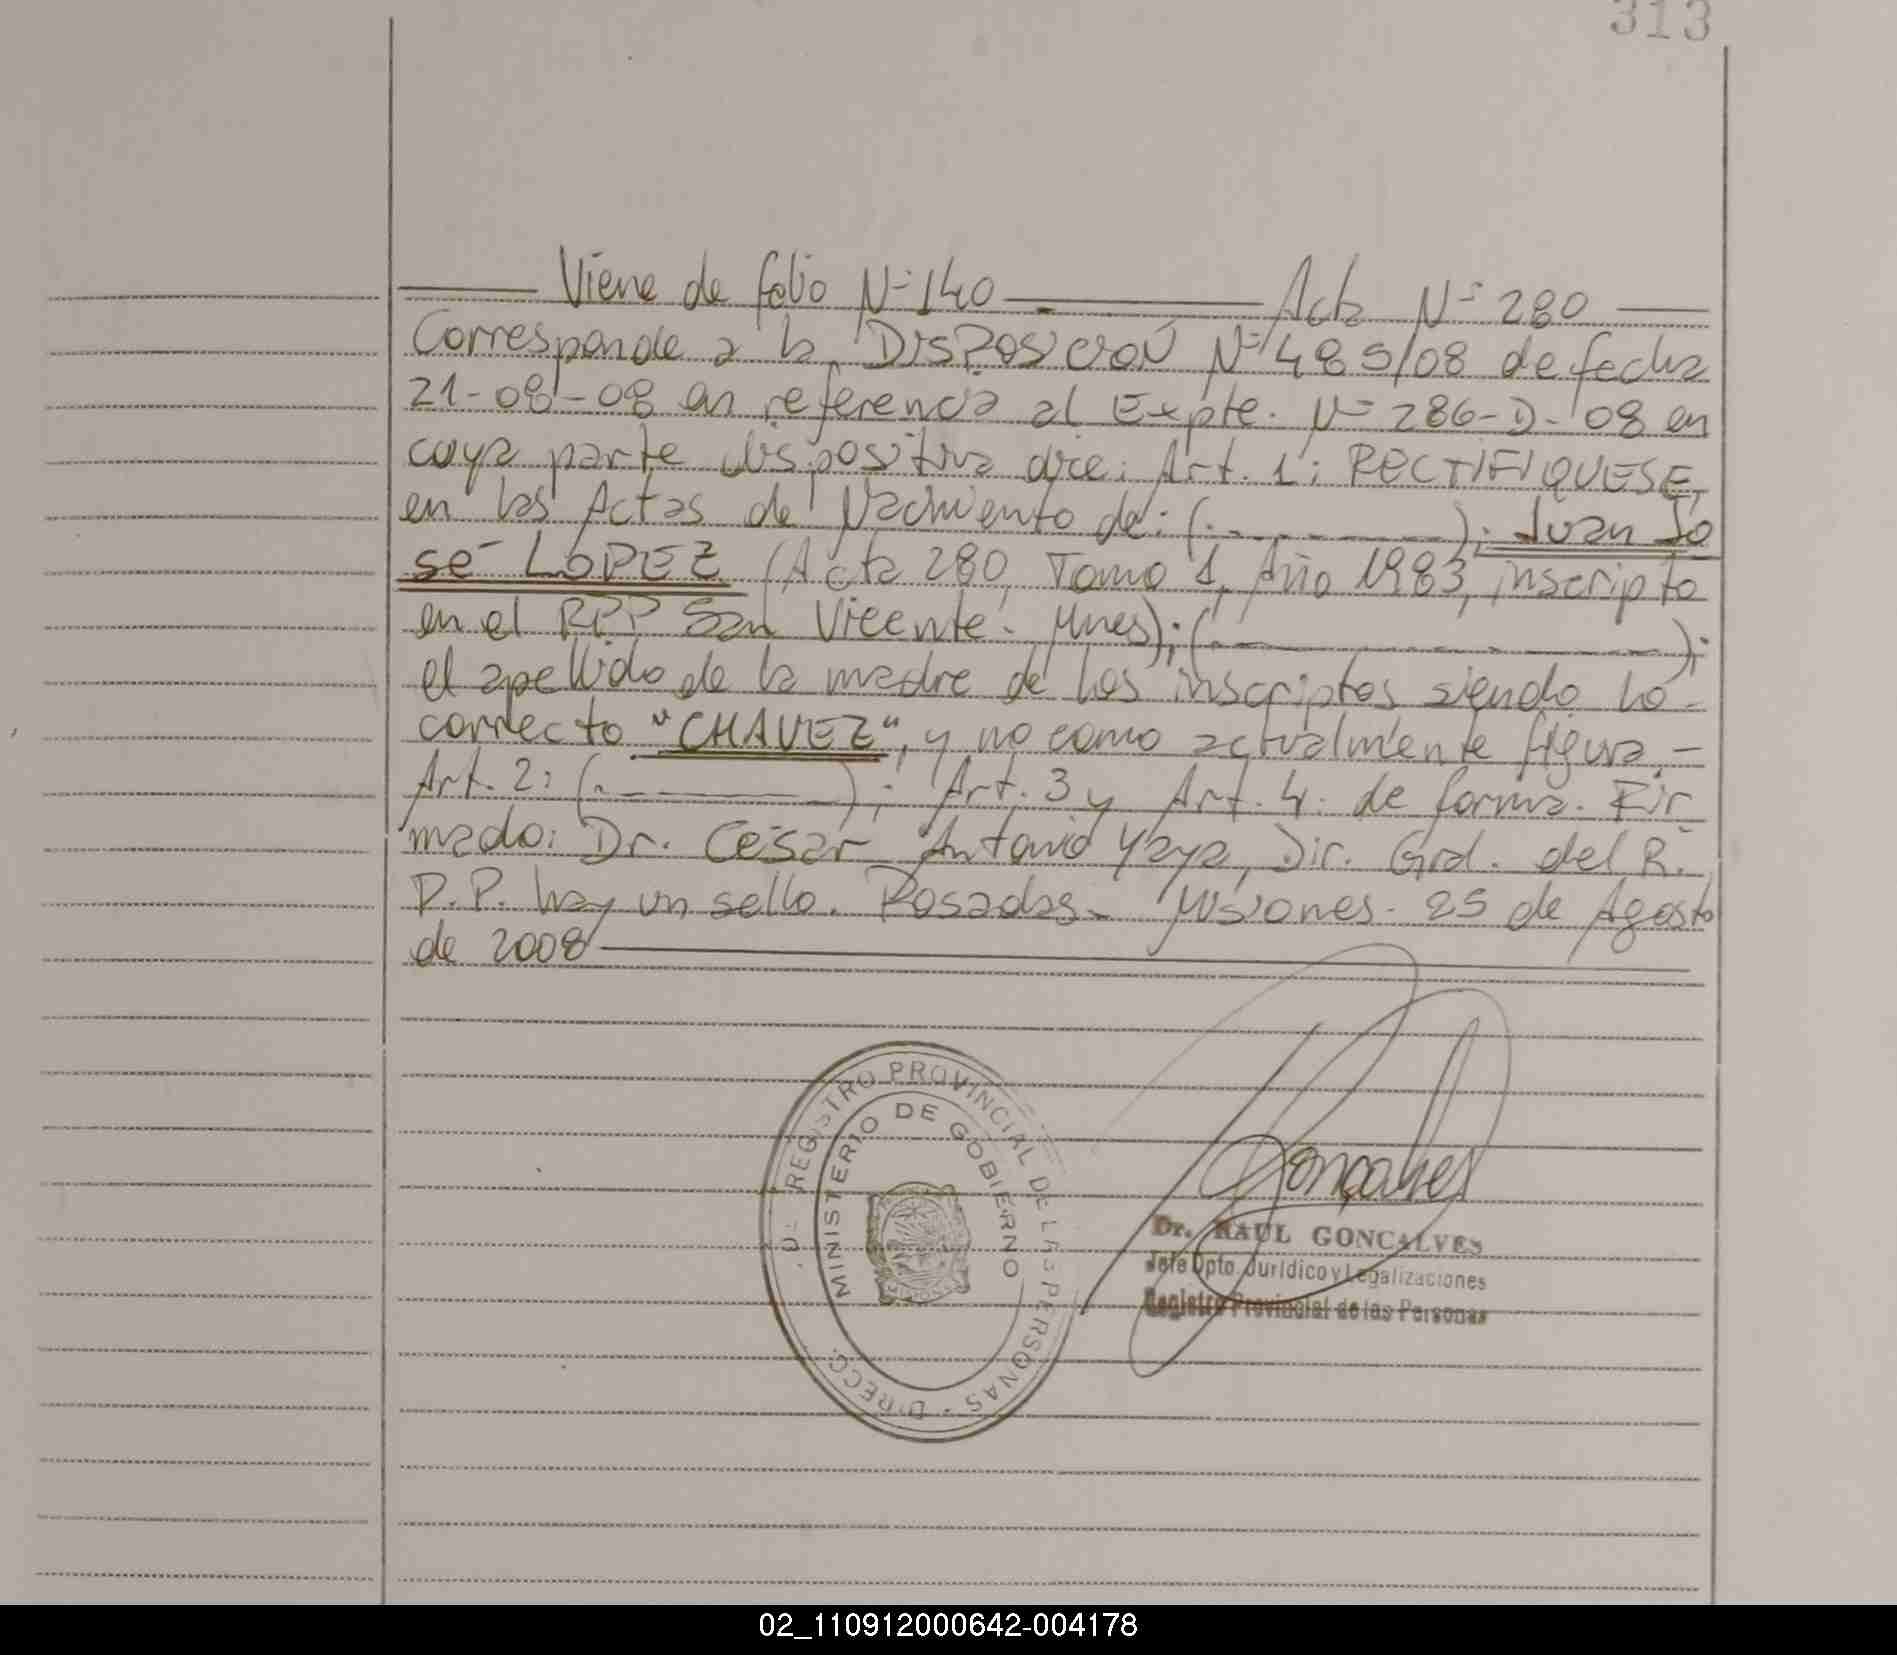 313
Viene de folio Nº 140 Acta Nº 280
Corresponde a la Disposición Nº 485/08 de fecha
21-08-08 en referencia al Expte. Nº 286-D-08 en
cuya parte dispositiva dice: Art. 1: RECTIFIQUESE,
en las Actas de Nacimiento de: (. ); Juan Jo
sé LOPEZ (Acta 280, Tomo 1, Año 1983, inscripto
en el RPP San Vicente. Mnes); (. );
el apellido de la madre de los inscriptos siendo lo
correcto "CHAVEZ", y no como actualmente figura.-
Art. 2: (. ); Art. 3 y Art. 4. de forma. Fir
mado: Dr. César Antonio Yaya, Dir. Gral. del R.
P.P. hay un sello. Posadas- Misiones- 25 de Agosto
de 2008
REGISTRO PROVINCIAL DE LAS PERSONAS - DIRECC.
MINISTERIO DE GOBIERNO
Goncalves
Dr. RAUL GONCALVES
Jefe Dpto. Jurídico y Legalizaciones
Registro Provincial de las Personas
02_110912000642-004178